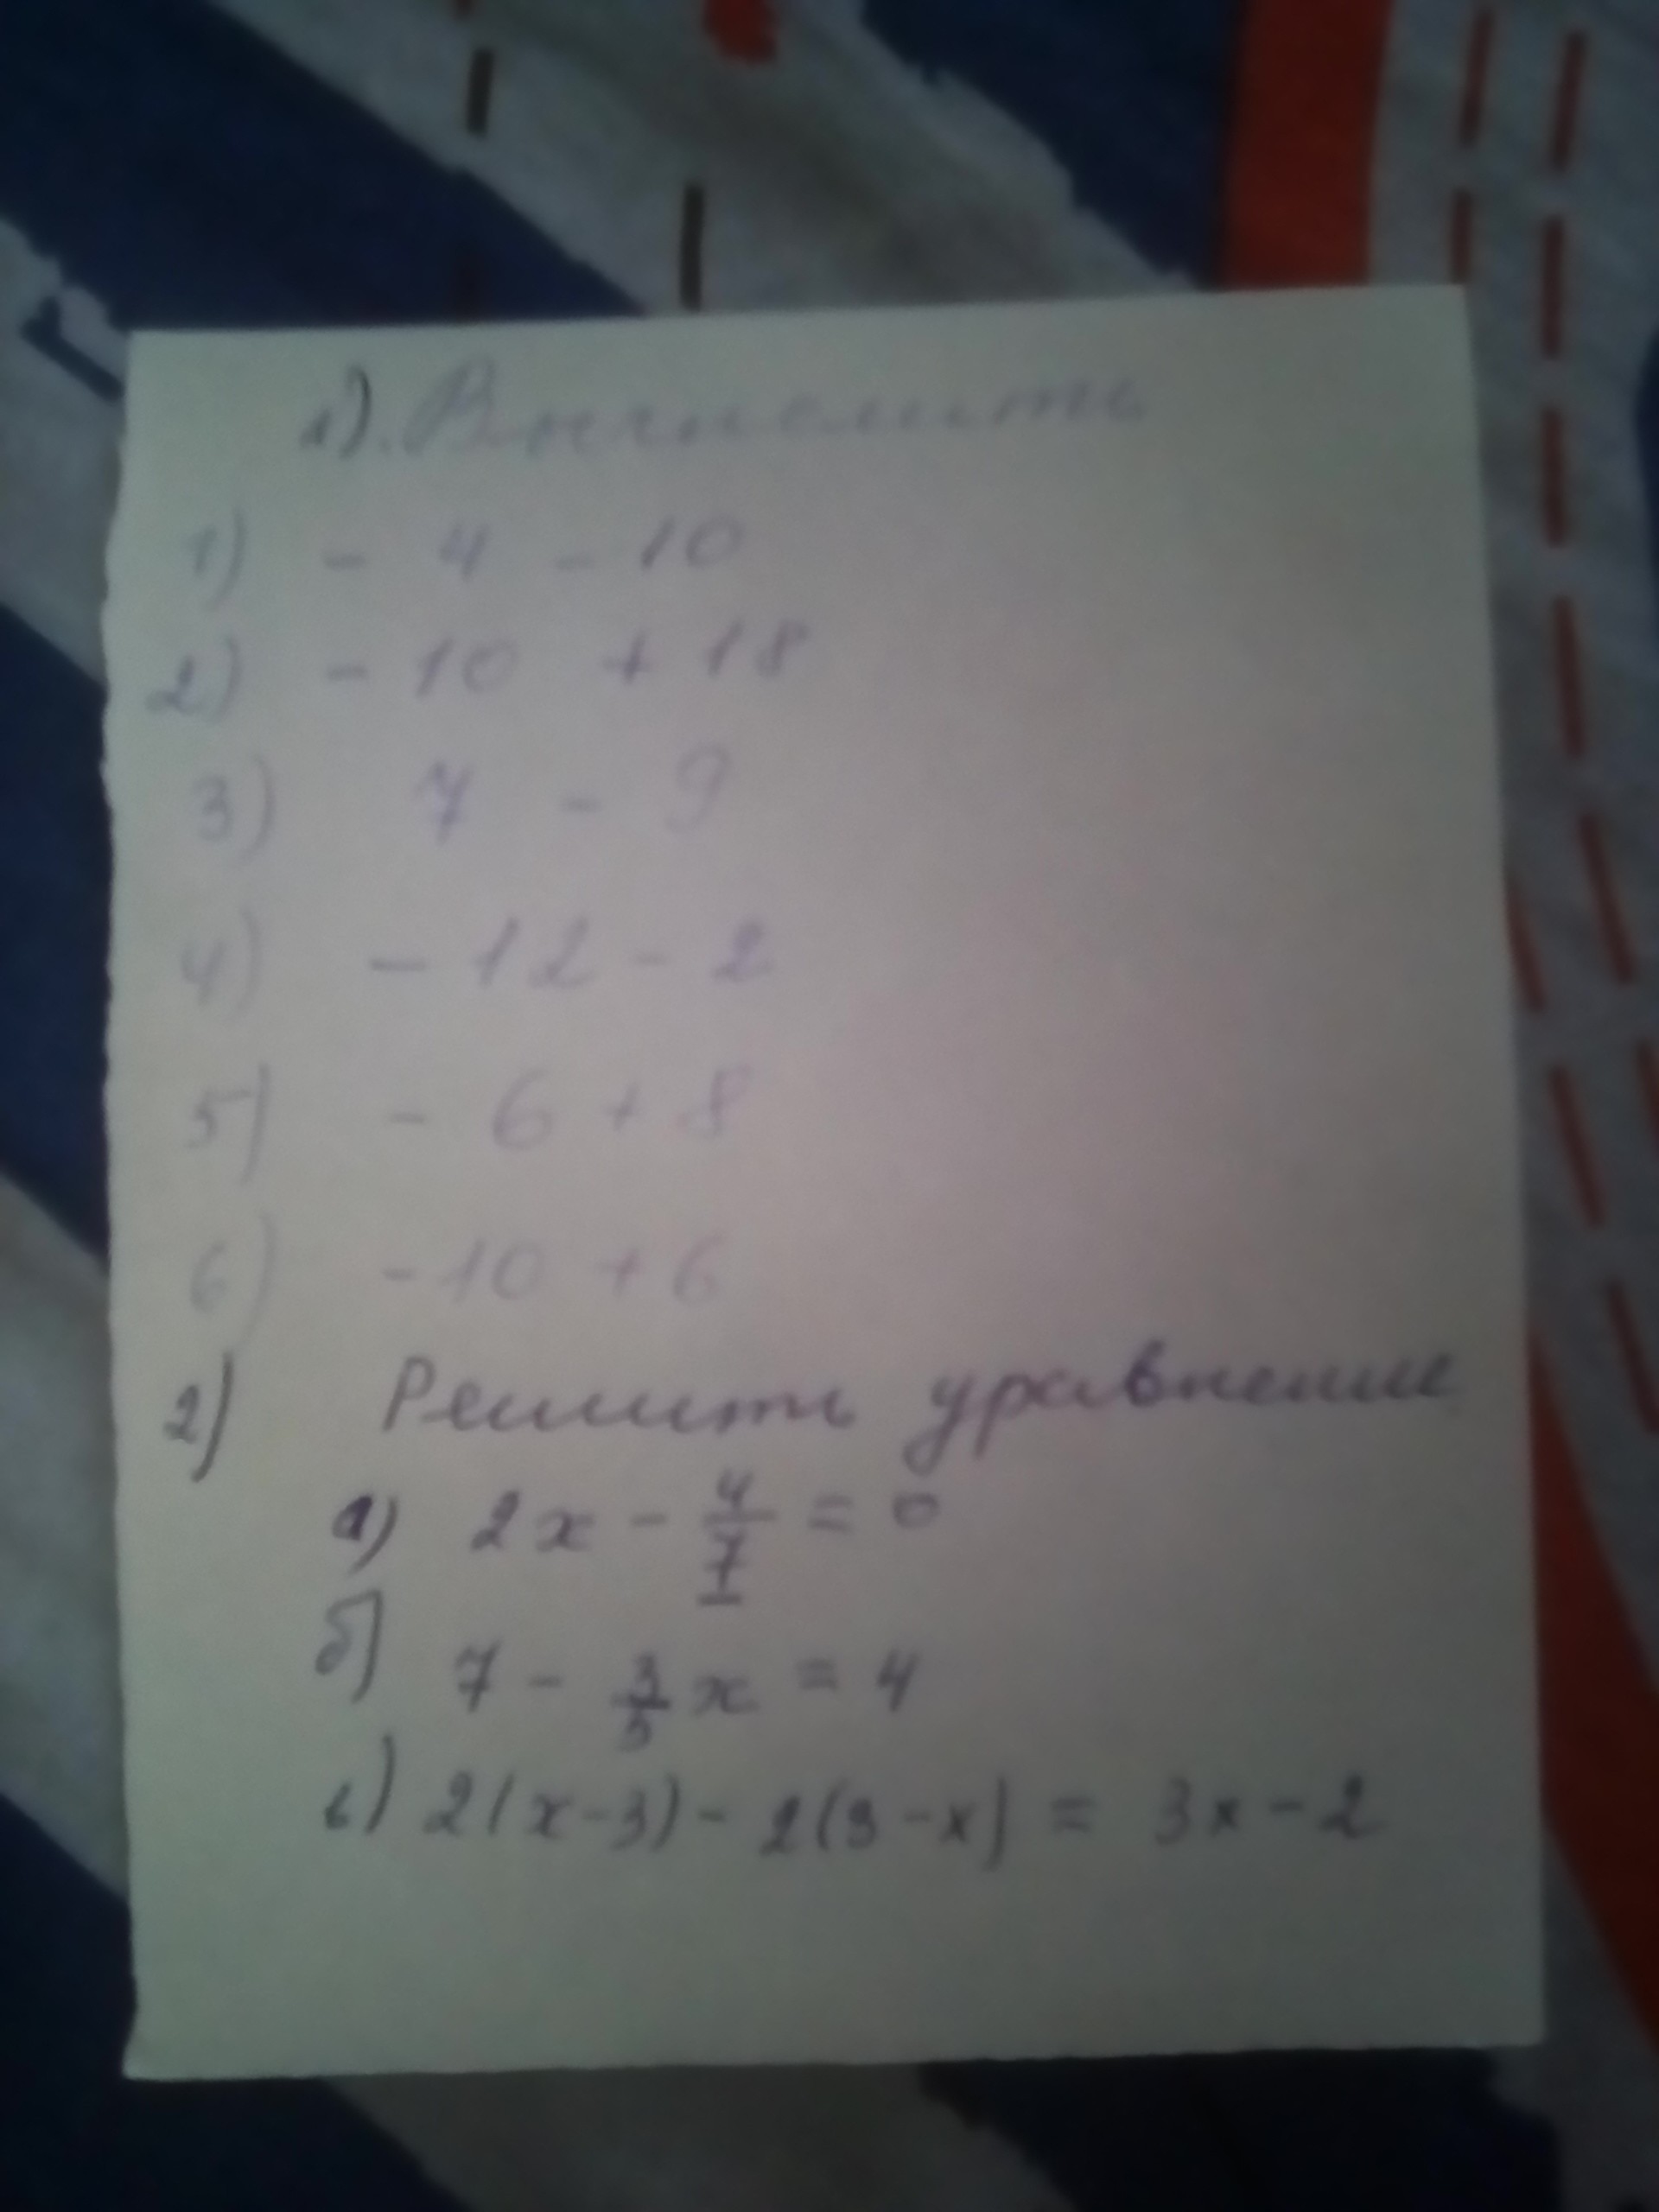 1). Вычислить
1) - 4 - 10
2) - 10 + 18
3) 7 - 9
4) - 12 - 2
5) - 6 + 8
6) - 10 + 6
2) Решить уравнение
а) 2x - 4/7 = 0
б) 7 - 3/5 x = 4
в) 2(x-3) - 2(3-x) = 3x-2